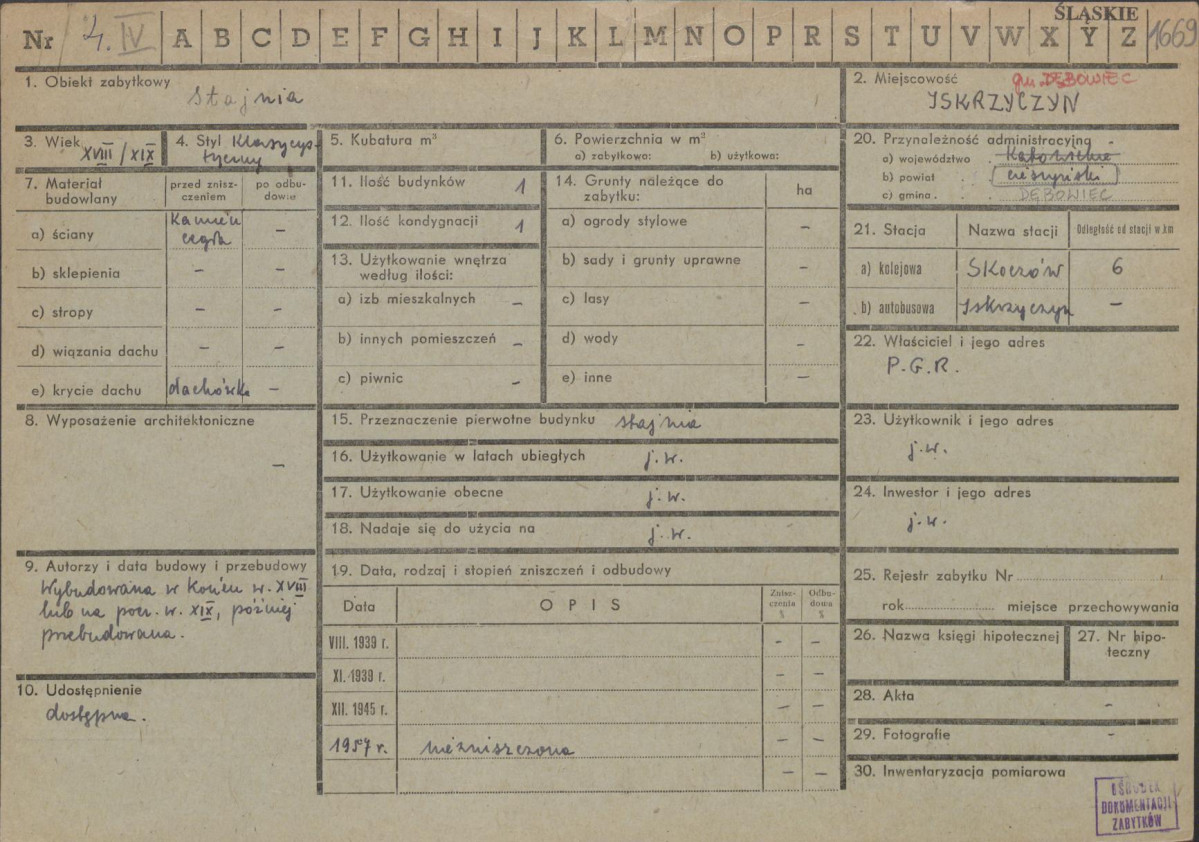 ŚLĄSKIE
Nr 4. IV A B C D E F G H I J K L M N O P R S T U V W X Y Z 1669
1. Obiekt zabytkowy
stajnia
2. Miejscowość gm. DĘBOWIEC
ISKRZYCZYN
3. Wiek XVIII/XIX
4. Styl Klasycys-
tyczny
5. Kubatura m³
6. Powierzchnia w m²
a) zabytkowa: b) użytkowa:
20. Przynależność administracyjna
a) województwo Katowickie
b) powiat cieszyński
c) gmina DĘBOWIEC
7. Materiał
budowlany
przed znisz-
czeniem
po odbu-
dowie
a) ściany Kamień
cegła –
b) sklepienia – –
c) stropy – –
d) wiązania dachu – –
e) krycie dachu dachówka –
11. Ilość budynków 1
12. Ilość kondygnacji 1
13. Użytkowanie wnętrza
według ilości:
a) izb mieszkalnych –
b) innych pomieszczeń –
c) piwnic –
14. Grunty należące do
zabytku:
ha
a) ogrody stylowe –
b) sady i grunty uprawne –
c) lasy –
d) wody –
e) inne –
21. Stacja Nazwa stacji Odległość od stacji w km
a) kolejowa Skoczów 6
b) autobusowa Iskrzyczyn –
22. Właściciel i jego adres
P.G.R.
8. Wyposażenie architektoniczne
–
15. Przeznaczenie pierwotne budynku stajnia
16. Użytkowanie w latach ubiegłych j.w.
17. Użytkowanie obecne j.w.
18. Nadaje się do użycia na j.w.
23. Użytkownik i jego adres
j.w.
24. Inwestor i jego adres
j.w.
9. Autorzy i data budowy i przebudowy
Wybudowana w końcu w. XVIII
lub na pocz. w. XIX, później
przebudowana.
10. Udostępnienie
dostępna.
19. Data, rodzaj i stopień zniszczeń i odbudowy
Data OPIS Znisz-
czenia
% Odbu-
dowa
%
VIII. 1939 r. – –
XI. 1939 r. – –
XII. 1945 r. – –
1957 r. niezniszczona – –
– –
25. Rejestr zabytku Nr
rok miejsce przechowywania
26. Nazwa księgi hipotecznej
27. Nr hipo-
teczny
28. Akta –
29. Fotografie –
30. Inwentaryzacja pomiarowa
OŚRODEK
DOKUMENTACJI
ZABYTKÓW